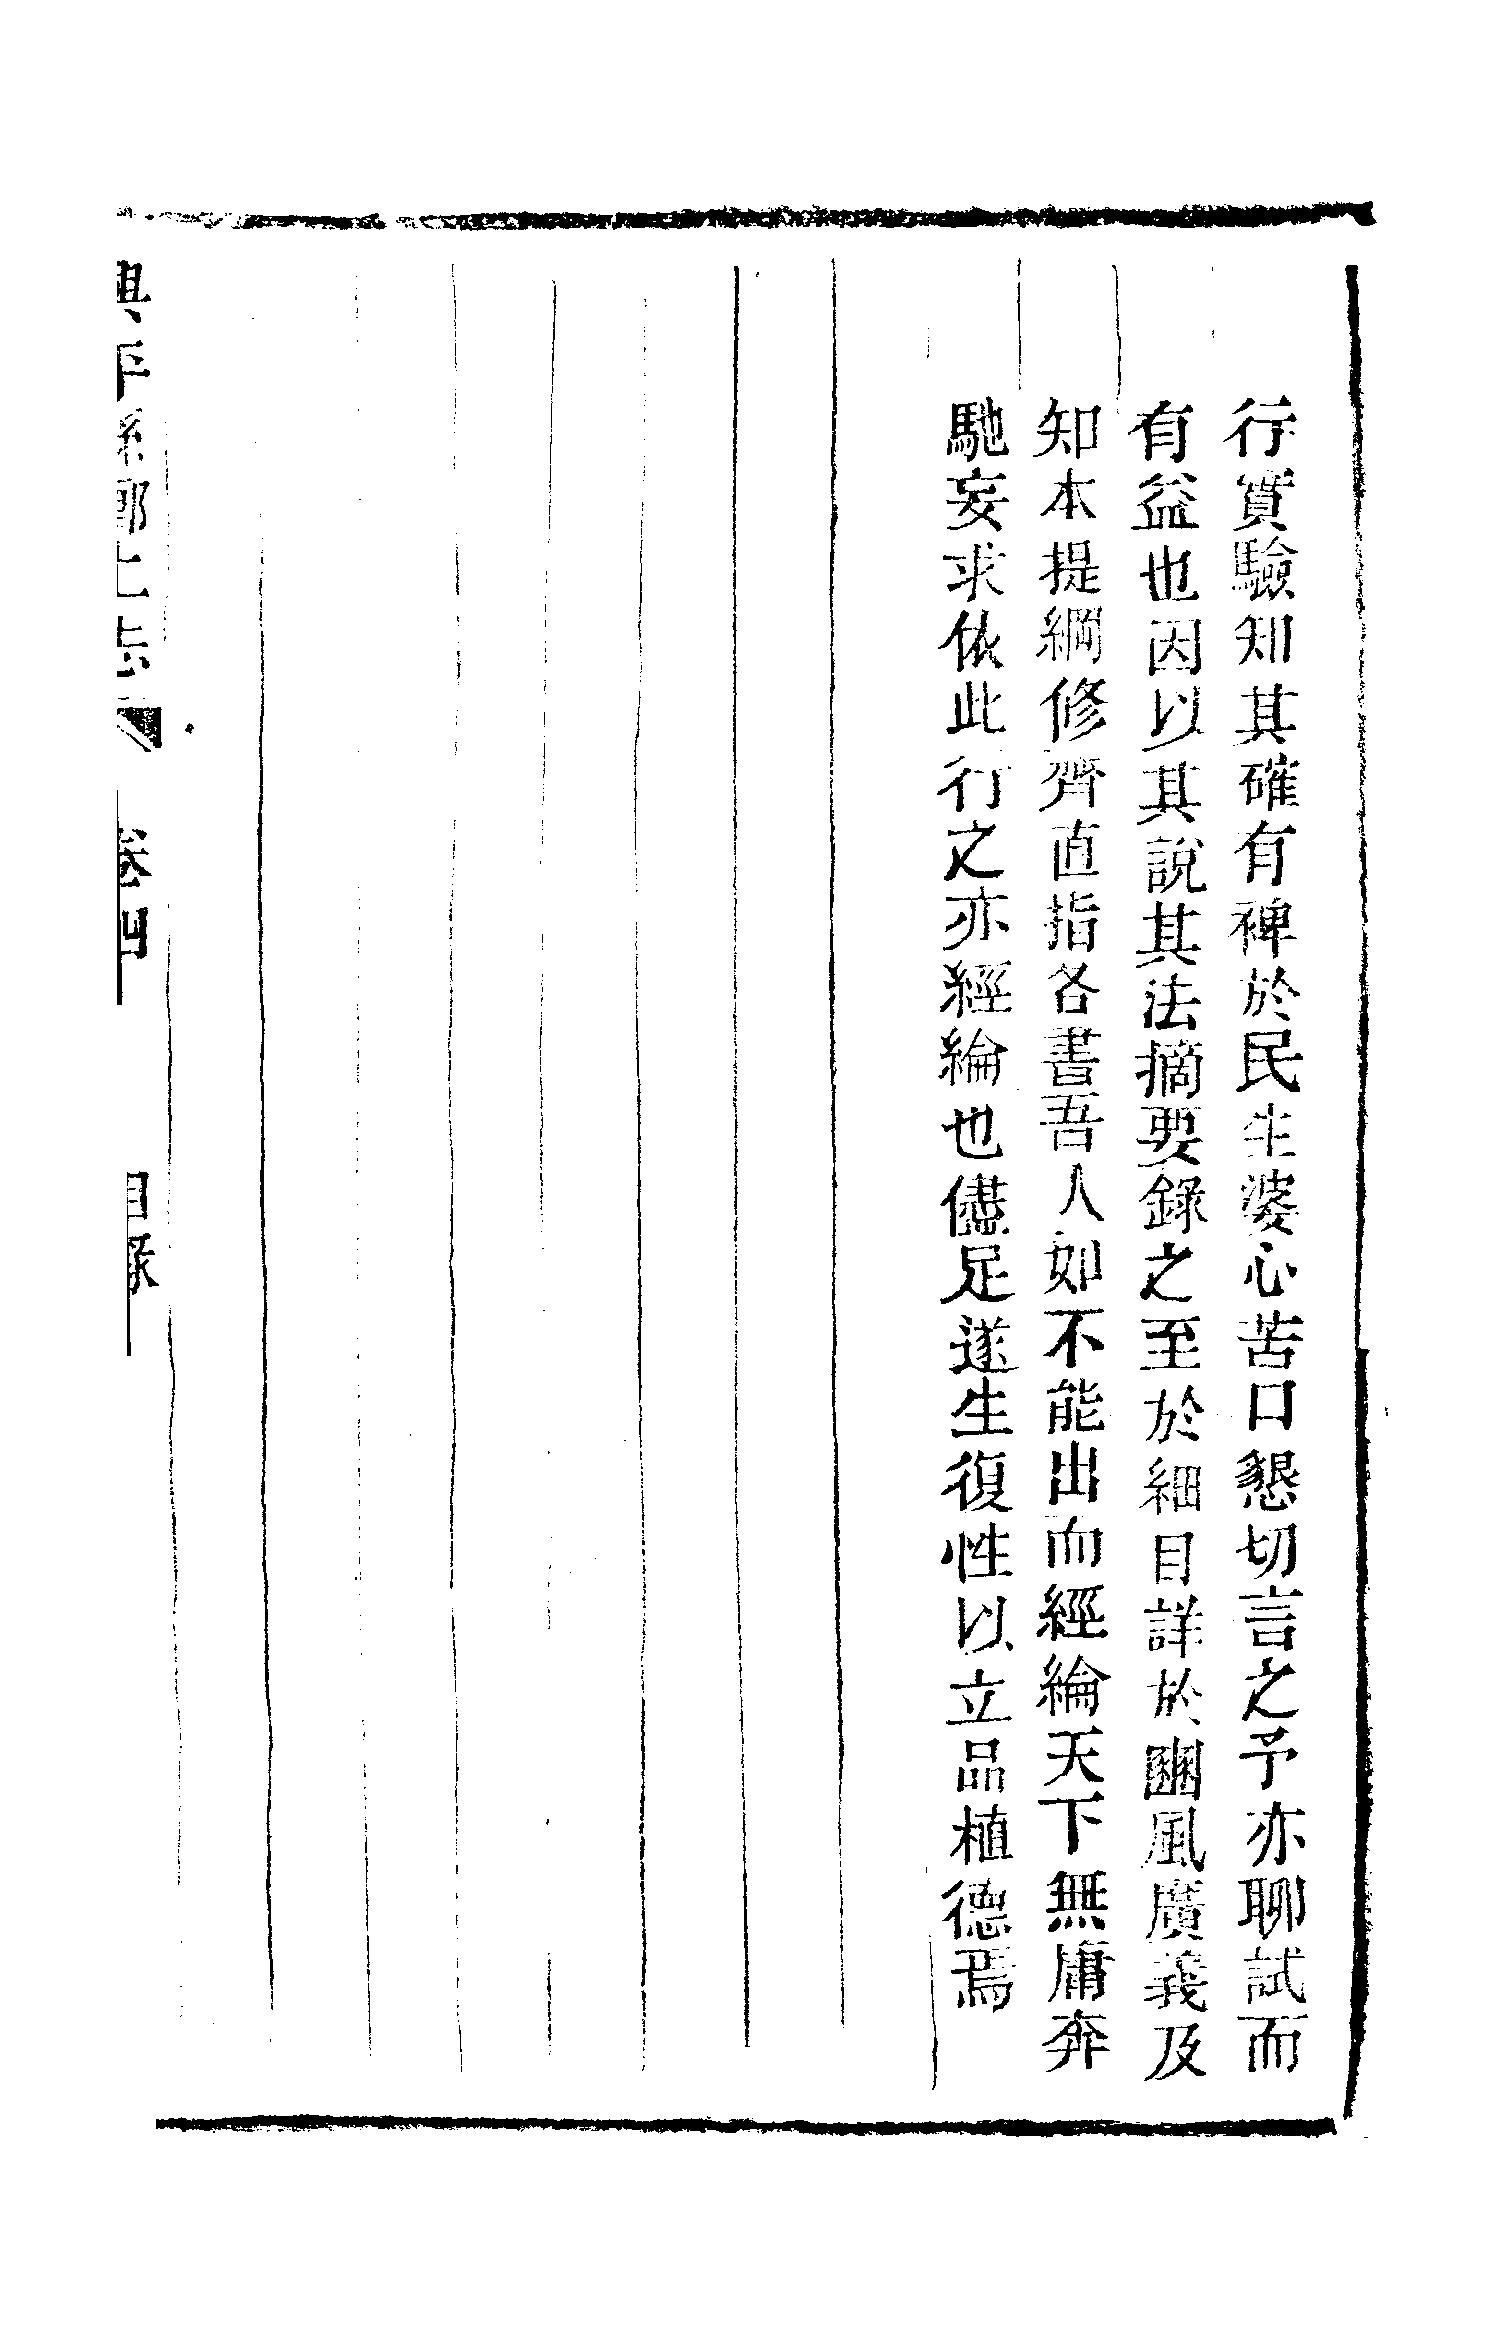 行實驗知其確有裨於民生婆心苦口懇切言之予亦聊試而
有益也因以其說其法摘要錄之至於細目詳於豳風廣義及
知本提綱修齊直指各書吾人如不能出而經綸天下無庸奔
馳妄求依此行之亦經綸也儘足遂生復性以立品植德焉
興平縣鄉土志 卷四 目錄